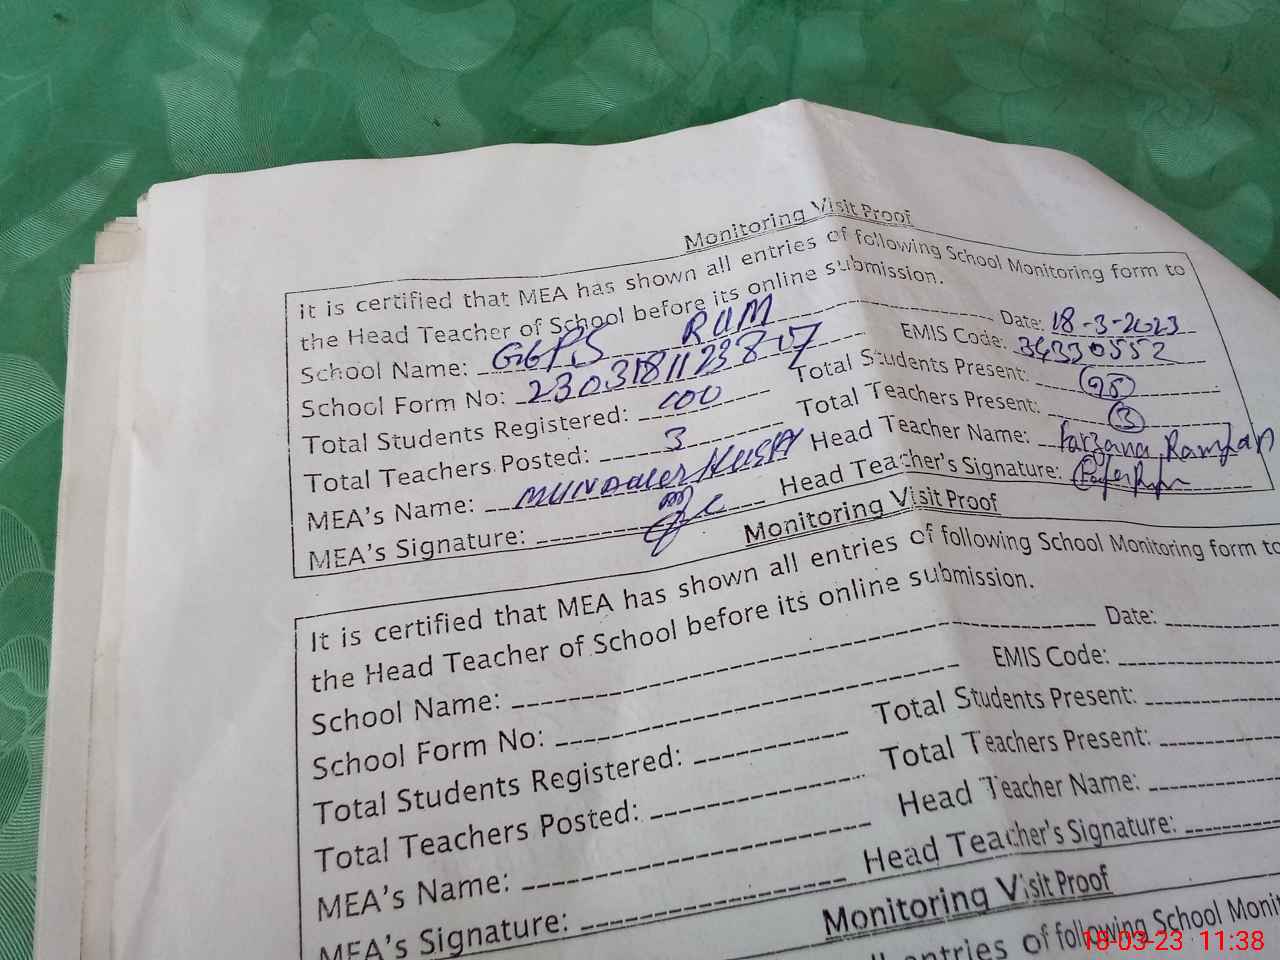 Monitoring Visit Proof
it is certified that MEA has shown all entries of following School Monitoring form to
the Head Teacher of School before its online submission.
School Name: GGPS RUM Date: 18-3-2023
School Form No: 23031811123807 EMIS Code: 34330552
Total Students Registered: 100 Total Students Present: 95
Total Teachers Posted: 3 Total Teachers Present: 3
MEA's Name: Head Teacher Name: Farzana Ramzan
MEA's Signature: Head Teacher's Signature:
Monitoring Visit Proof
It is certified that MEA has shown all entries of following School Monitoring form to
the Head Teacher of School before its online submission.
School Name: Date:
School Form No: EMIS Code:
Total Students Registered: Total Students Present:
Total Teachers Posted: Total Teachers Present:
MEA's Name: Head Teacher Name:
MEA's Signature: Head Teacher's Signature:
Monitoring Visit Proof
entries of following School Monit
18-03-23 11:38